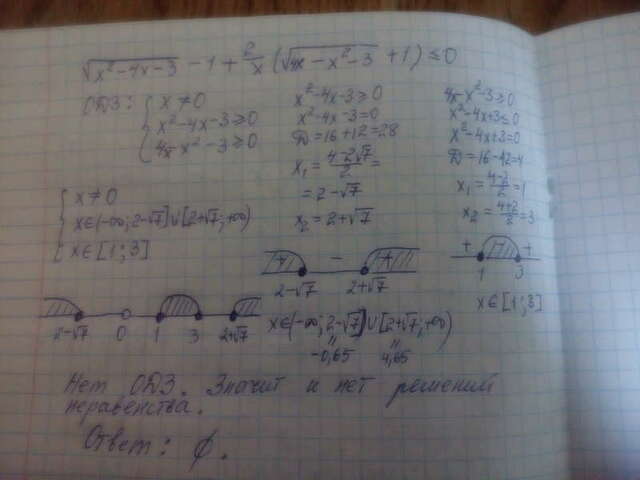 √x²-4x-3 - 1 + 2/x (√4x-x²-3 + 1) ≤ 0
ОДЗ: { x ≠ 0
x²-4x-3 ≥ 0
4x-x²-3 ≥ 0
{ x ≠ 0
x∈(-∞; 2-√7] ∪ [2+√7; +∞)
x∈[1; 3]
x²-4x-3 ≥ 0
x²-4x-3 = 0
D = 16+12 = 28
x₁ = 4-2√7/2 =
= 2-√7
x₂ = 2+√7
4x-x²-3 ≥ 0
x²-4x+3 ≤ 0
x²-4x+3 = 0
D = 16-12 = 4
x₁ = 4-2/2 = 1
x₂ = 4+2/2 = 3
+ - +
2-√7 2+√7
+ - +
1 3
x∈[1; 3]
2-√7 0 1 3 2+√7
x∈(-∞; 2-√7] ∪ [2+√7; +∞)
-0,65 4,65
Нет ОДЗ. Значит и нет решений
неравенства.
Ответ: ∅.